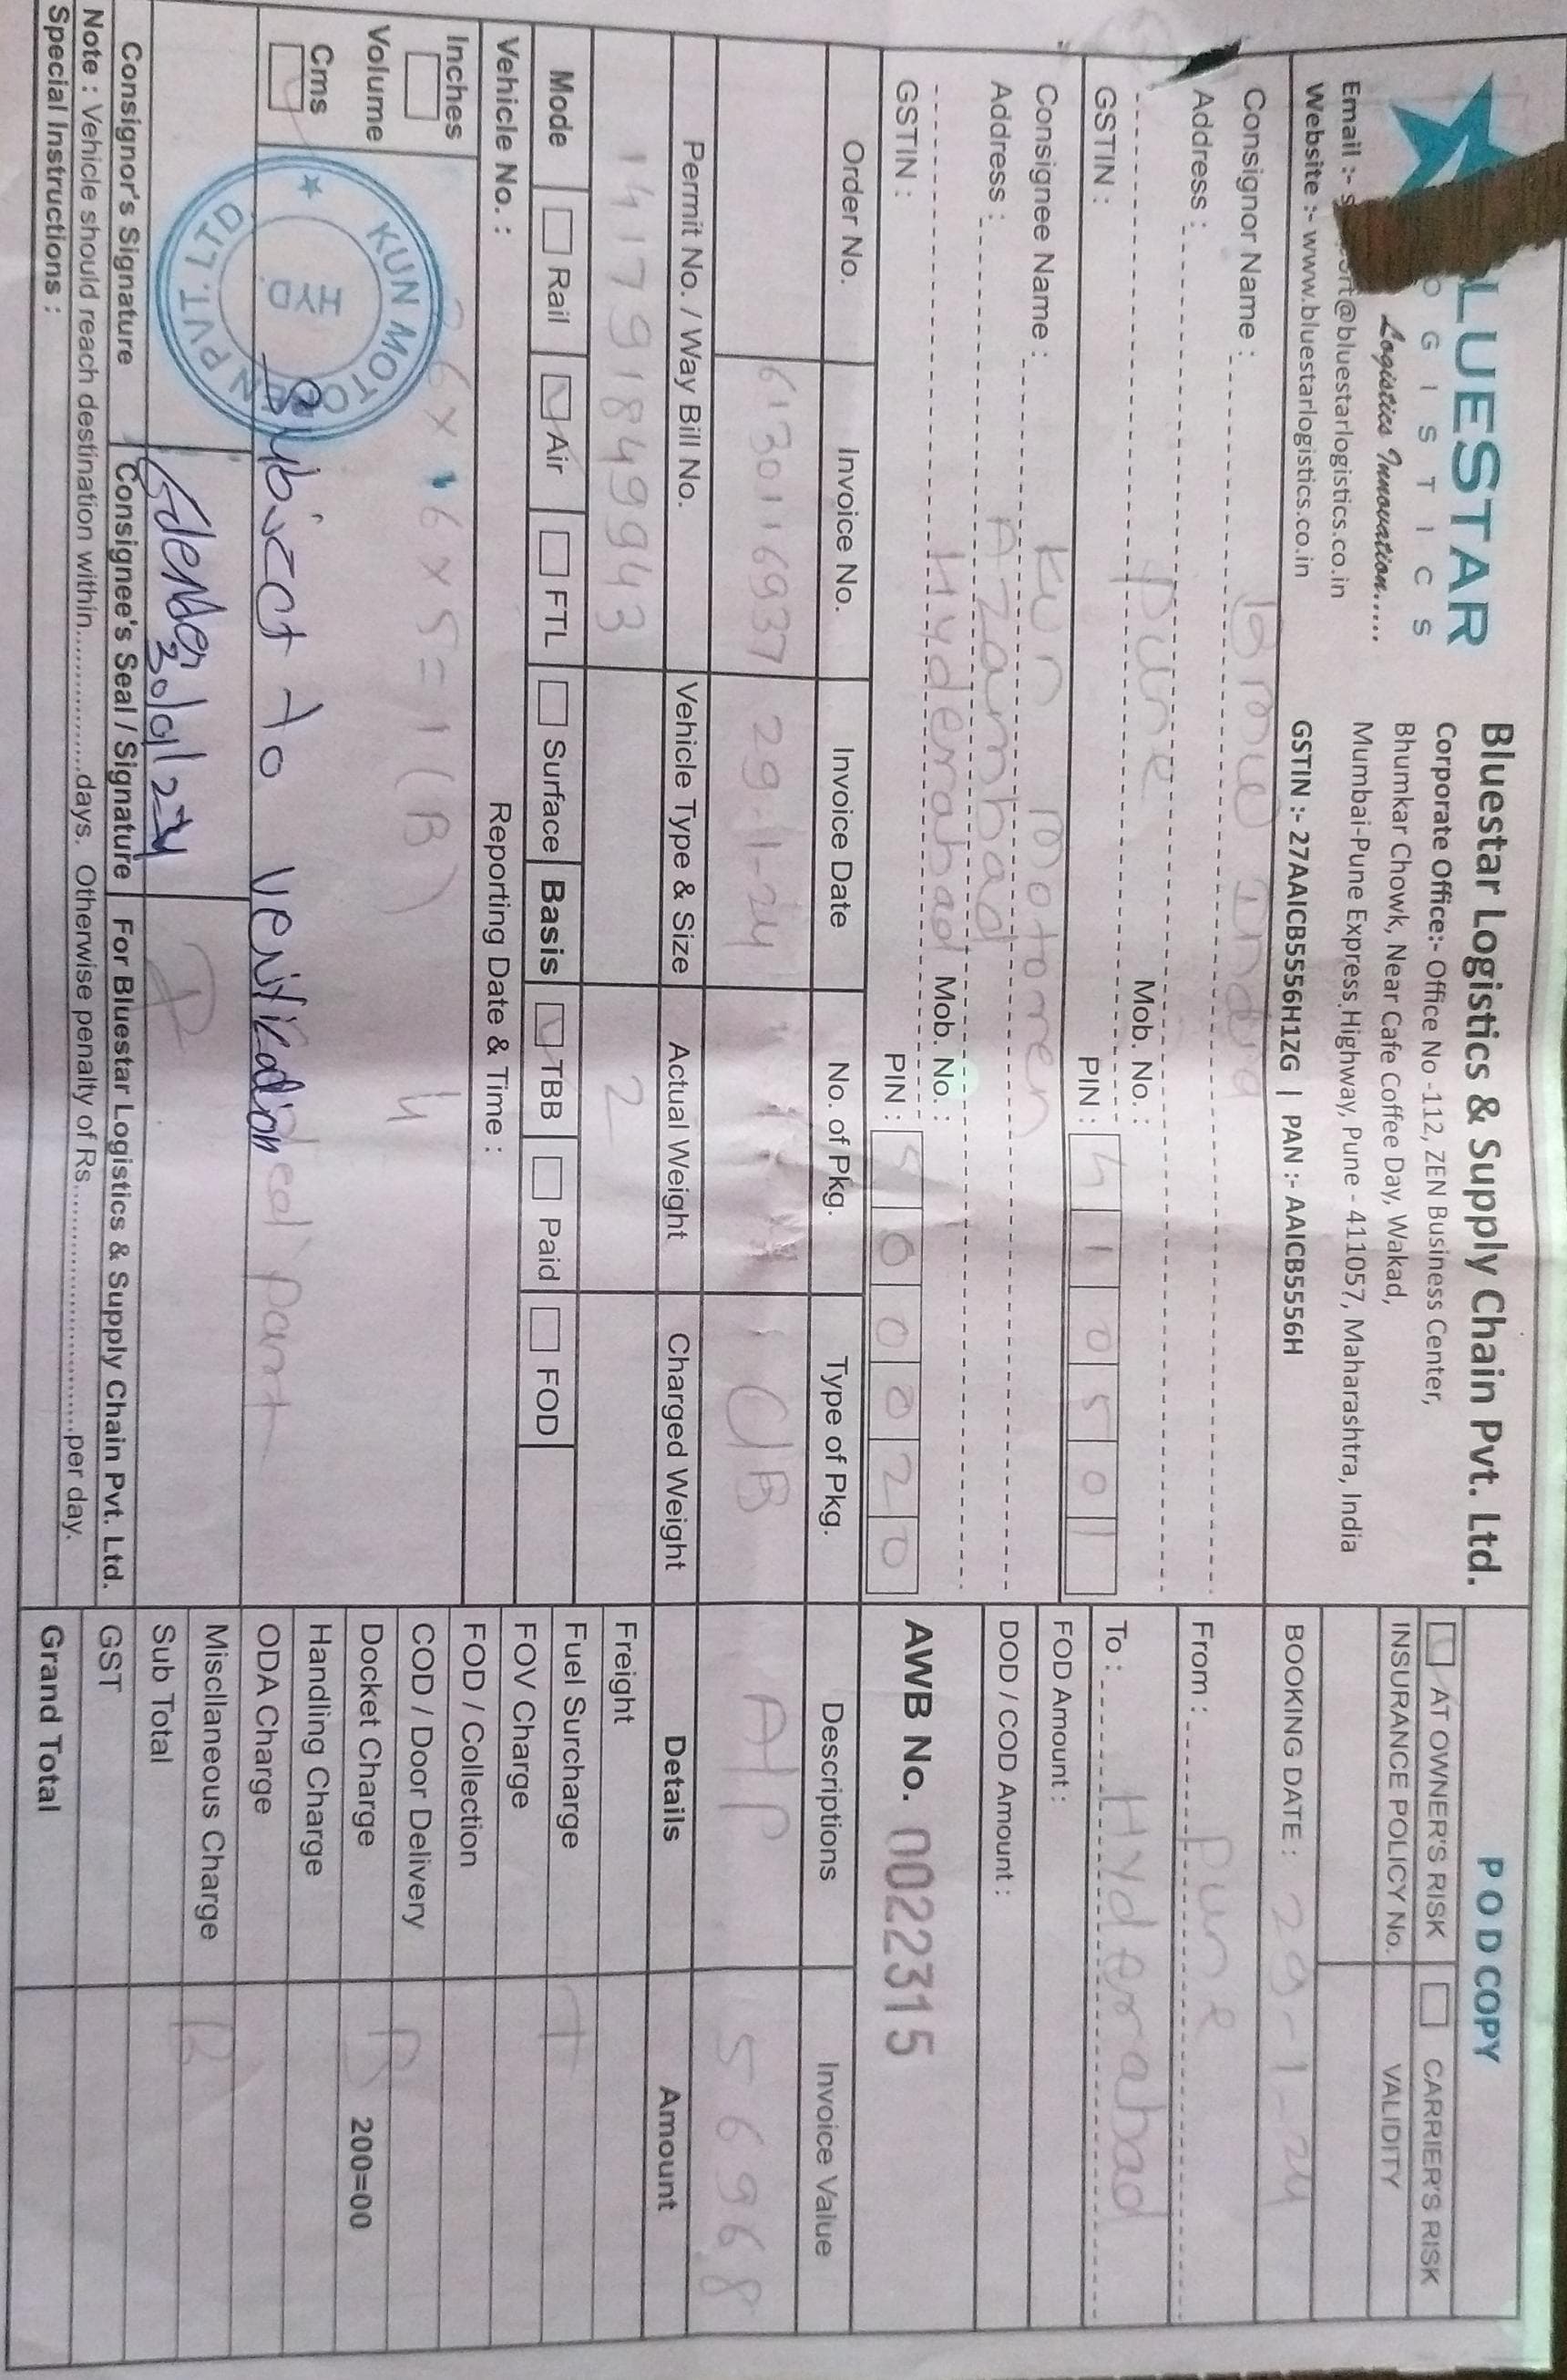 LUESTAR
OGISTICS
Logistics Innovation.....
Email :- s ort@bluestarlogistics.co.in
Website :- www.bluestarlogistics.co.in
Bluestar Logistics & Supply Chain Pvt. Ltd.
Corporate Office:- Office No -112, ZEN Business Center,
Bhumkar Chowk, Near Cafe Coffee Day, Wakad,
Mumbai-Pune Express Highway, Pune - 411057, Maharashtra, India
GSTIN :- 27AAICB5556H1ZG | PAN :- AAICB5556H
P O D COPY
AT OWNER'S RISK CARRIER'S RISK
INSURANCE POLICY No. VALIDITY
BOOKING DATE : 29-1-24
Consignor Name : BMW India
Address :
Pune Mob. No. :
GSTIN : PIN : 410501
From : Pune
To : Hyderabad
Consignee Name : KUN Motoren
Address : Azambad
Hyderabad Mob. No. :
GSTIN : PIN : 500020
FOD Amount :
DOD / COD Amount :
AWB No. 0022315
Order No. Invoice No. Invoice Date No. of Pkg. Type of Pkg. Descriptions Invoice Value
6130116937 29-1-24 C/B A/P 56968
Permit No. / Way Bill No. Vehicle Type & Size Actual Weight Charged Weight Details Amount
141791849943 2
Freight
Mode Rail Air FTL Surface Basis TBB Paid FOD
Fuel Surcharge
Vehicle No. : Reporting Date & Time :
FOV Charge
Inches
6 x 5 = 1 (B) 4
FOD / Collection
COD / Door Delivery
Volume
Docket Charge 200=00
Cms
Handling Charge
KUN MOTOREN PVT. LTD
HYD.
Subject to verification part
ODA Charge
30/01/24
Miscllaneous Charge
Sub Total
Consignor's Signature Consignee's Seal / Signature For Bluestar Logistics & Supply Chain Pvt. Ltd.
GST
Note : Vehicle should reach destination within.................days. Otherwise penalty of Rs..............................per day.
Special Instructions :
Grand Total